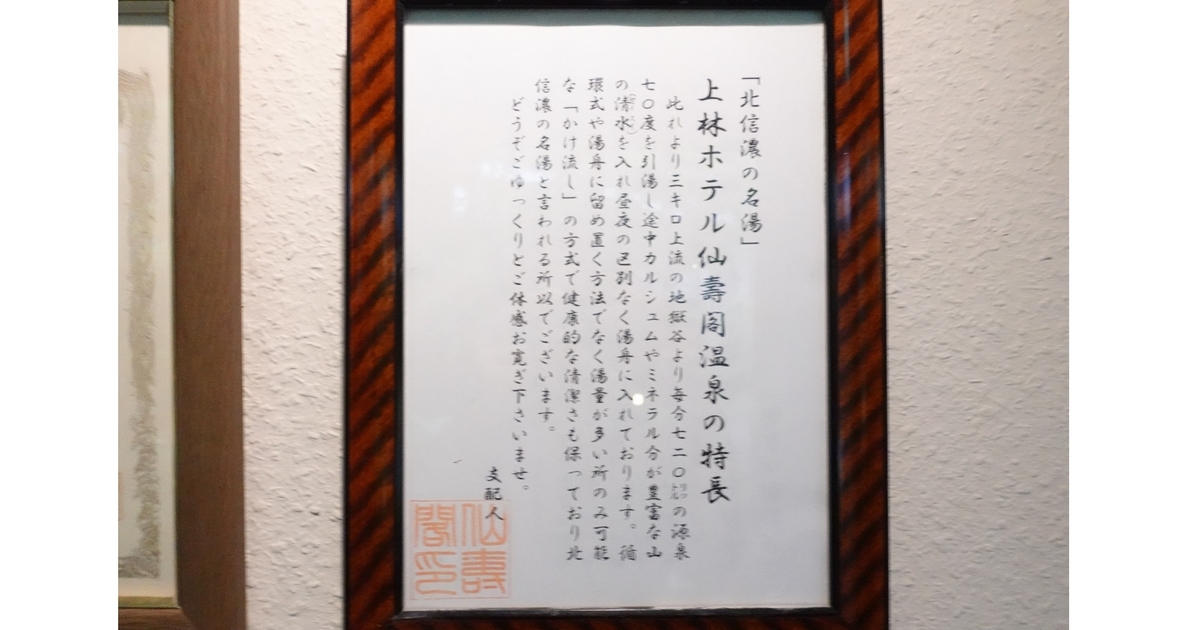 「北信濃の名湯」
上林ホテル仙壽閣温泉の特長
此れより三キロ上流の地獄谷より毎分七二〇リットルの源泉
七〇度を引湯し途中カルシュムやミネラル分が豊富な山
の清水を入れ昼夜の区別なく湯舟に入れております。循
環式や湯舟に留め置く方法でなく湯量が多い所のみ可能
な「かけ流し」の方式で健康的な清潔さも保っており北
信濃の名湯と言われる所以でございます。
どうぞごゆっくりとご体感お寛ぎ下さいませ。
支配人
仙壽
閣印